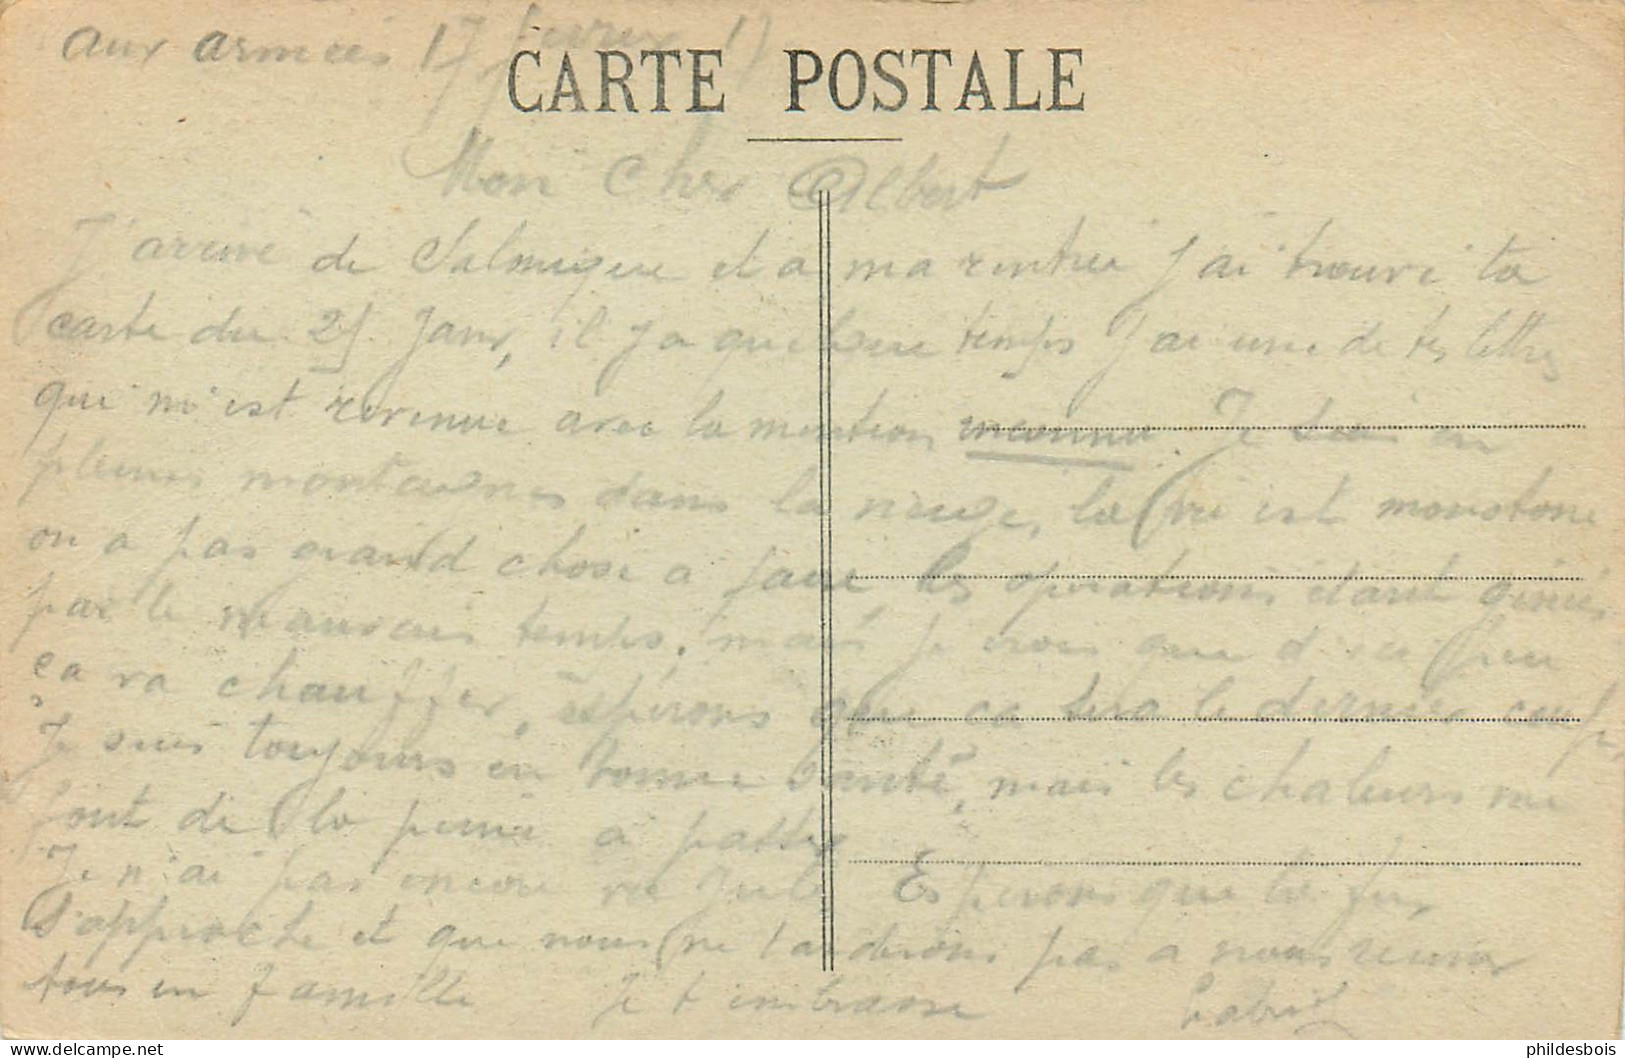 aux armées 17 février 17
CARTE POSTALE
Mon Cher Albert
J'arrive de Salonique et a ma rentrée j'ai trouvé ta
carte du 25 Janv, il y a quelque temps j'ai une de tes lettres
qui m'est revenue avec la mention inconnu. Je suis en
pleines montagnes dans la neige, la vie est monotone
on a pas grand chose a faire les opérations étant génées
par le mauvais temps. mais je crois que d'ici peu
ça va chauffer, espérons que ca sera le dernier coup,
Je suis toujours en bonne santé, mais les chaleurs me
font de la peine a passer
Je n'ai pas encore vu Jules Esperons que la fin
s'approche et que nous ne tarderons pas a nous réunir
tous en famille Je t'embrasse Gabriel
phildesbois